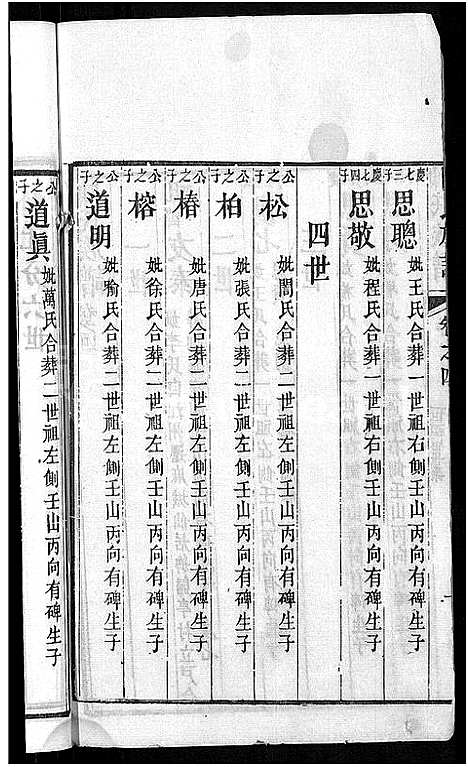 族譜
卷之四
慶七三子
思聰 妣王氏合葬二世祖右側壬山丙向有碑生子
慶七四子
思敬 妣程氏合葬二世祖右側壬山丙向有碑生子
四世
公之子
松 妣閻氏合葬二世祖左側壬山丙向有碑生子
公之子
柏 妣張氏合葬二世祖左側壬山丙向有碑生子
公之子
椿 妣唐氏合葬二世祖左側壬山丙向有碑生子
公之子
榕 妣徐氏合葬二世祖左側壬山丙向有碑生子
公之子
道明 妣喻氏合葬二世祖左側壬山丙向有碑生子
公之子
道眞 妣萬氏合葬二世祖左側壬山丙向有碑生子